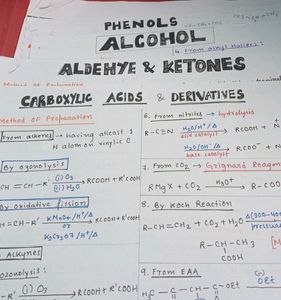 PHENOLS
ALCOHOL
4. From alkyl Halides:
ALDEHYE & KETONES
CARBOXYLIC ACIDS & DERIVATIVES
Method of Preparation
From alkenes → having atleast 1
H atom on vinylic C.
By ozonolysis
CH = CH – R' (i) O3 (ii) H2O → RCOOH + R'COOH
By oxidative fission
CH = CH – R' KMnO4/H+/Δ or K2Cr2O7/H+/Δ → RCOOH + R'COOH
Alkynes
ozonolysis:
– R' (i) O3 → RCOOH + R'COOH
6. From nitriles → hydrolysis
R – C≡N H2O/H+/Δ acid catalyst → RCOOH +
or
H2O/OH-/Δ base catalyst → RCOO- + N
7. From CO2 → Grignard Reagen
RMgX + CO2 H3O+ → R – COO
8. By Koch Reaction
R – CH = CH2 + CO2 + H2O Δ(300-400 pressure
R – CH – CH3
COOH
9. From EAA
H3C – C – CH2 – C – OEt
OEt